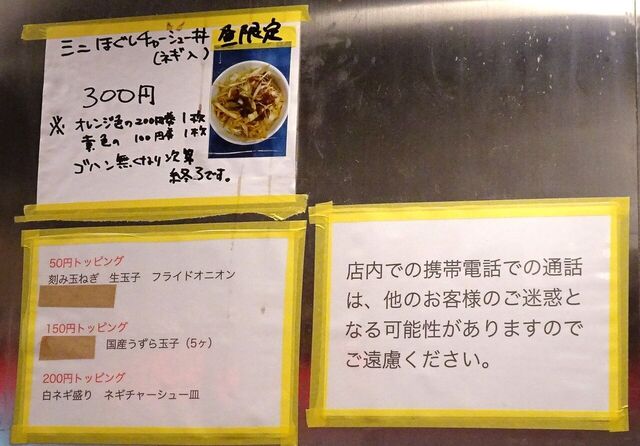 ミニ ほぐしチャーシュー丼 昼限定
(ネギ入)
300円
※ オレンジ色の200円券 1枚
黄色の 100円券 1枚
ゴハン無くなり次第
終了です。
50円トッピング
刻み玉ねぎ 生玉子 フライドオニオン
150円トッピング
国産うずら玉子(5ヶ)
200円トッピング
白ネギ盛り ネギチャーシュー皿
店内での携帯電話での通話
は、他のお客様のご迷惑と
なる可能性がありますので
ご遠慮ください。